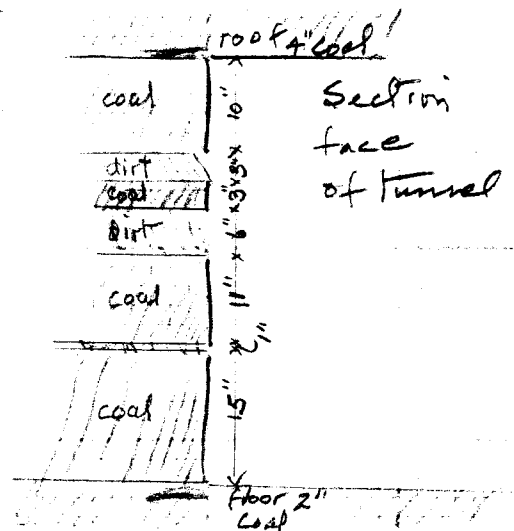 roof 4" coal
coal
10"
Section
face
of tunnel
dirt
3"
coal
3"
Dirt
6"
coal
11"
1"
coal
15"
floor 2"
Coal